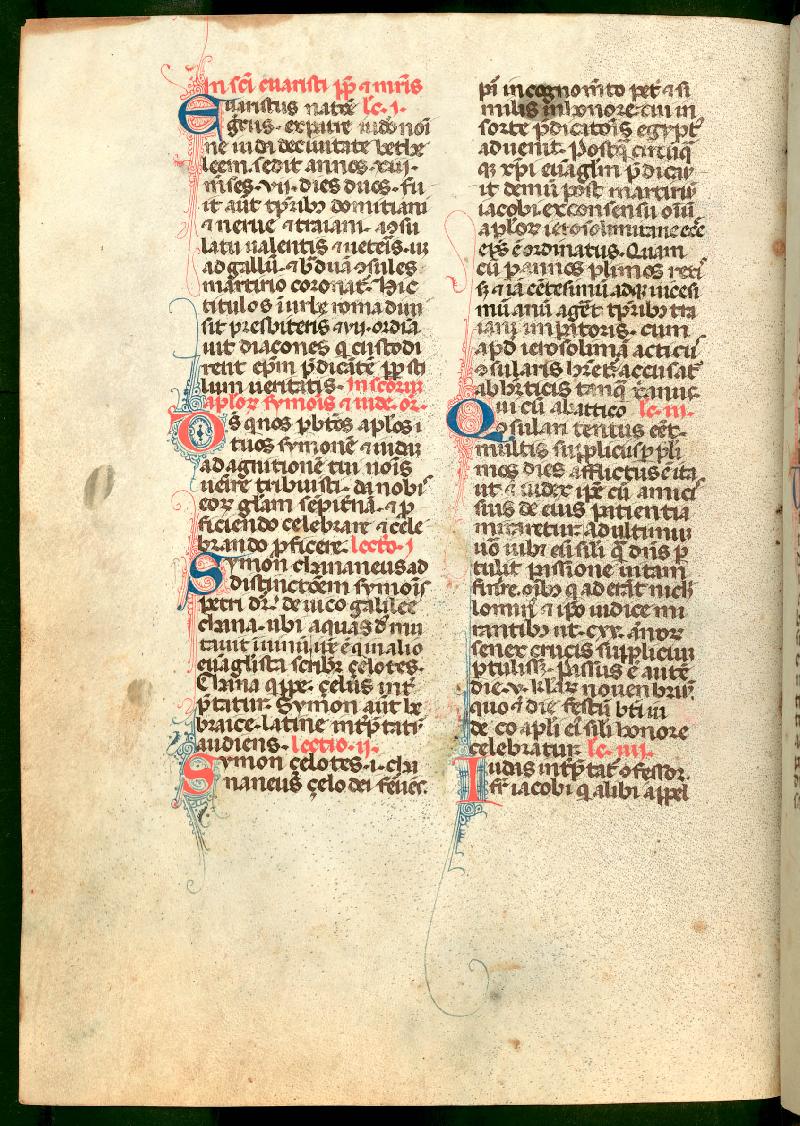 In sc̄i euaristi pp̄ ⁊ mr̄is
Euaristus natiōe lc̄. i.
grecus. ex patre iudeo noī
ne iuda de ciuitate bethe
leem. sedit annos. xiii.
mēses. vii. dies duos. fu
it aūt tp̄ribꝫ domitiani
⁊ nerue ⁊ traiani. a ꝯsu
latu ualentis ⁊ ueteris. usqꝫ
ad gallū. ⁊ bͣduā ꝯsules
martirio coronatᷣ. hic
titulos ī urbe roma diui
sit presbiteris ⁊ vii. ordīa
uit diacones qͥ custodi
rent ep̄m p̄dicātē ꝓpt̄ sti
lum ueritatis. In scōrum
aplōꝝ symōis ⁊ iude. or̄.
Dꝰ qui nos p̄ btōs ap̄los
tuos symonē ⁊ iudā
ad agnitionē tui nōis
uenire tribuisti. da nobis
eoꝝ gl̄am sēpit̄nā. ⁊ ꝓ
ficiendo celebrare ⁊ cele
brando ꝓficere. lectio. i
Symon chananeus ad
distinctōem symōis
petri dr̄. de uico galilee
chana. ubi aquas dn̄s mu
tauit ī uinū. ip̄e ē qͥ in alio
euāglista scribitᷣ çelotes.
Chana qͥppe. çelus int̄
p̄tatur. Symon aūt he
braice. latine int̄p̄tatᷣ
audiens. lectio. ii.
Symon çelotes. i. cha
naneus çelo dei feruēs.
pr̄i in cognomīto petͥ ⁊ si
milis in honore. cui in
sorte p̄dicatōis egyptꝰ
aduenit. Postqͣ cū usqꝫ
qꝫ xp̄i euāgl̄m p̄dicau
it demū post martiriū
iacobi. ex consensu oīum
aplōꝝ ierosolimitane ecc̄e
ep̄s ē ordinatus. Quam
cū p annos plīmos rexis
sꝫ ⁊ iā cētesimū adqꝫ uicesi
mū anū agēt tp̄ribꝫ tra
iani imꝑatoris. cum
apud ierosolimā actīcū
ꝯsularis hr̄et. accusatꝰ
ab hereticis tanqͣ xp̄ianus.
Qui cū ab attico lc̄. iii.
ꝯsulari tentus ēēt.
multis suppliciis ꝑ plī
mos dies afflictus ē ita
ut ⁊ iudex ip̄e cū amicis
suis de eius patientia
miraretur. ad ultimū
uō uibꝰ ei sīli qͣ dn̄s ꝑ
tulit passione uitam
finire. oībꝫ qͥ aderāt mich
lomin ⁊ ip̄o iudice mi
rantibꝫ ut. cxx. ānoꝝ
senex crucis supplicium
ꝑtulisꝫ. Passus ē autē
die. v. kl̄as nouenbriū.
quo ⁊ die festū bt̄i iu
de eo ap̄li ei sīli honore
celebratur. lc̄. iiii.
Iudas int̄p̄tatᷣ ꝯfessor.
fr̄ iacobi qͥ alibi appel